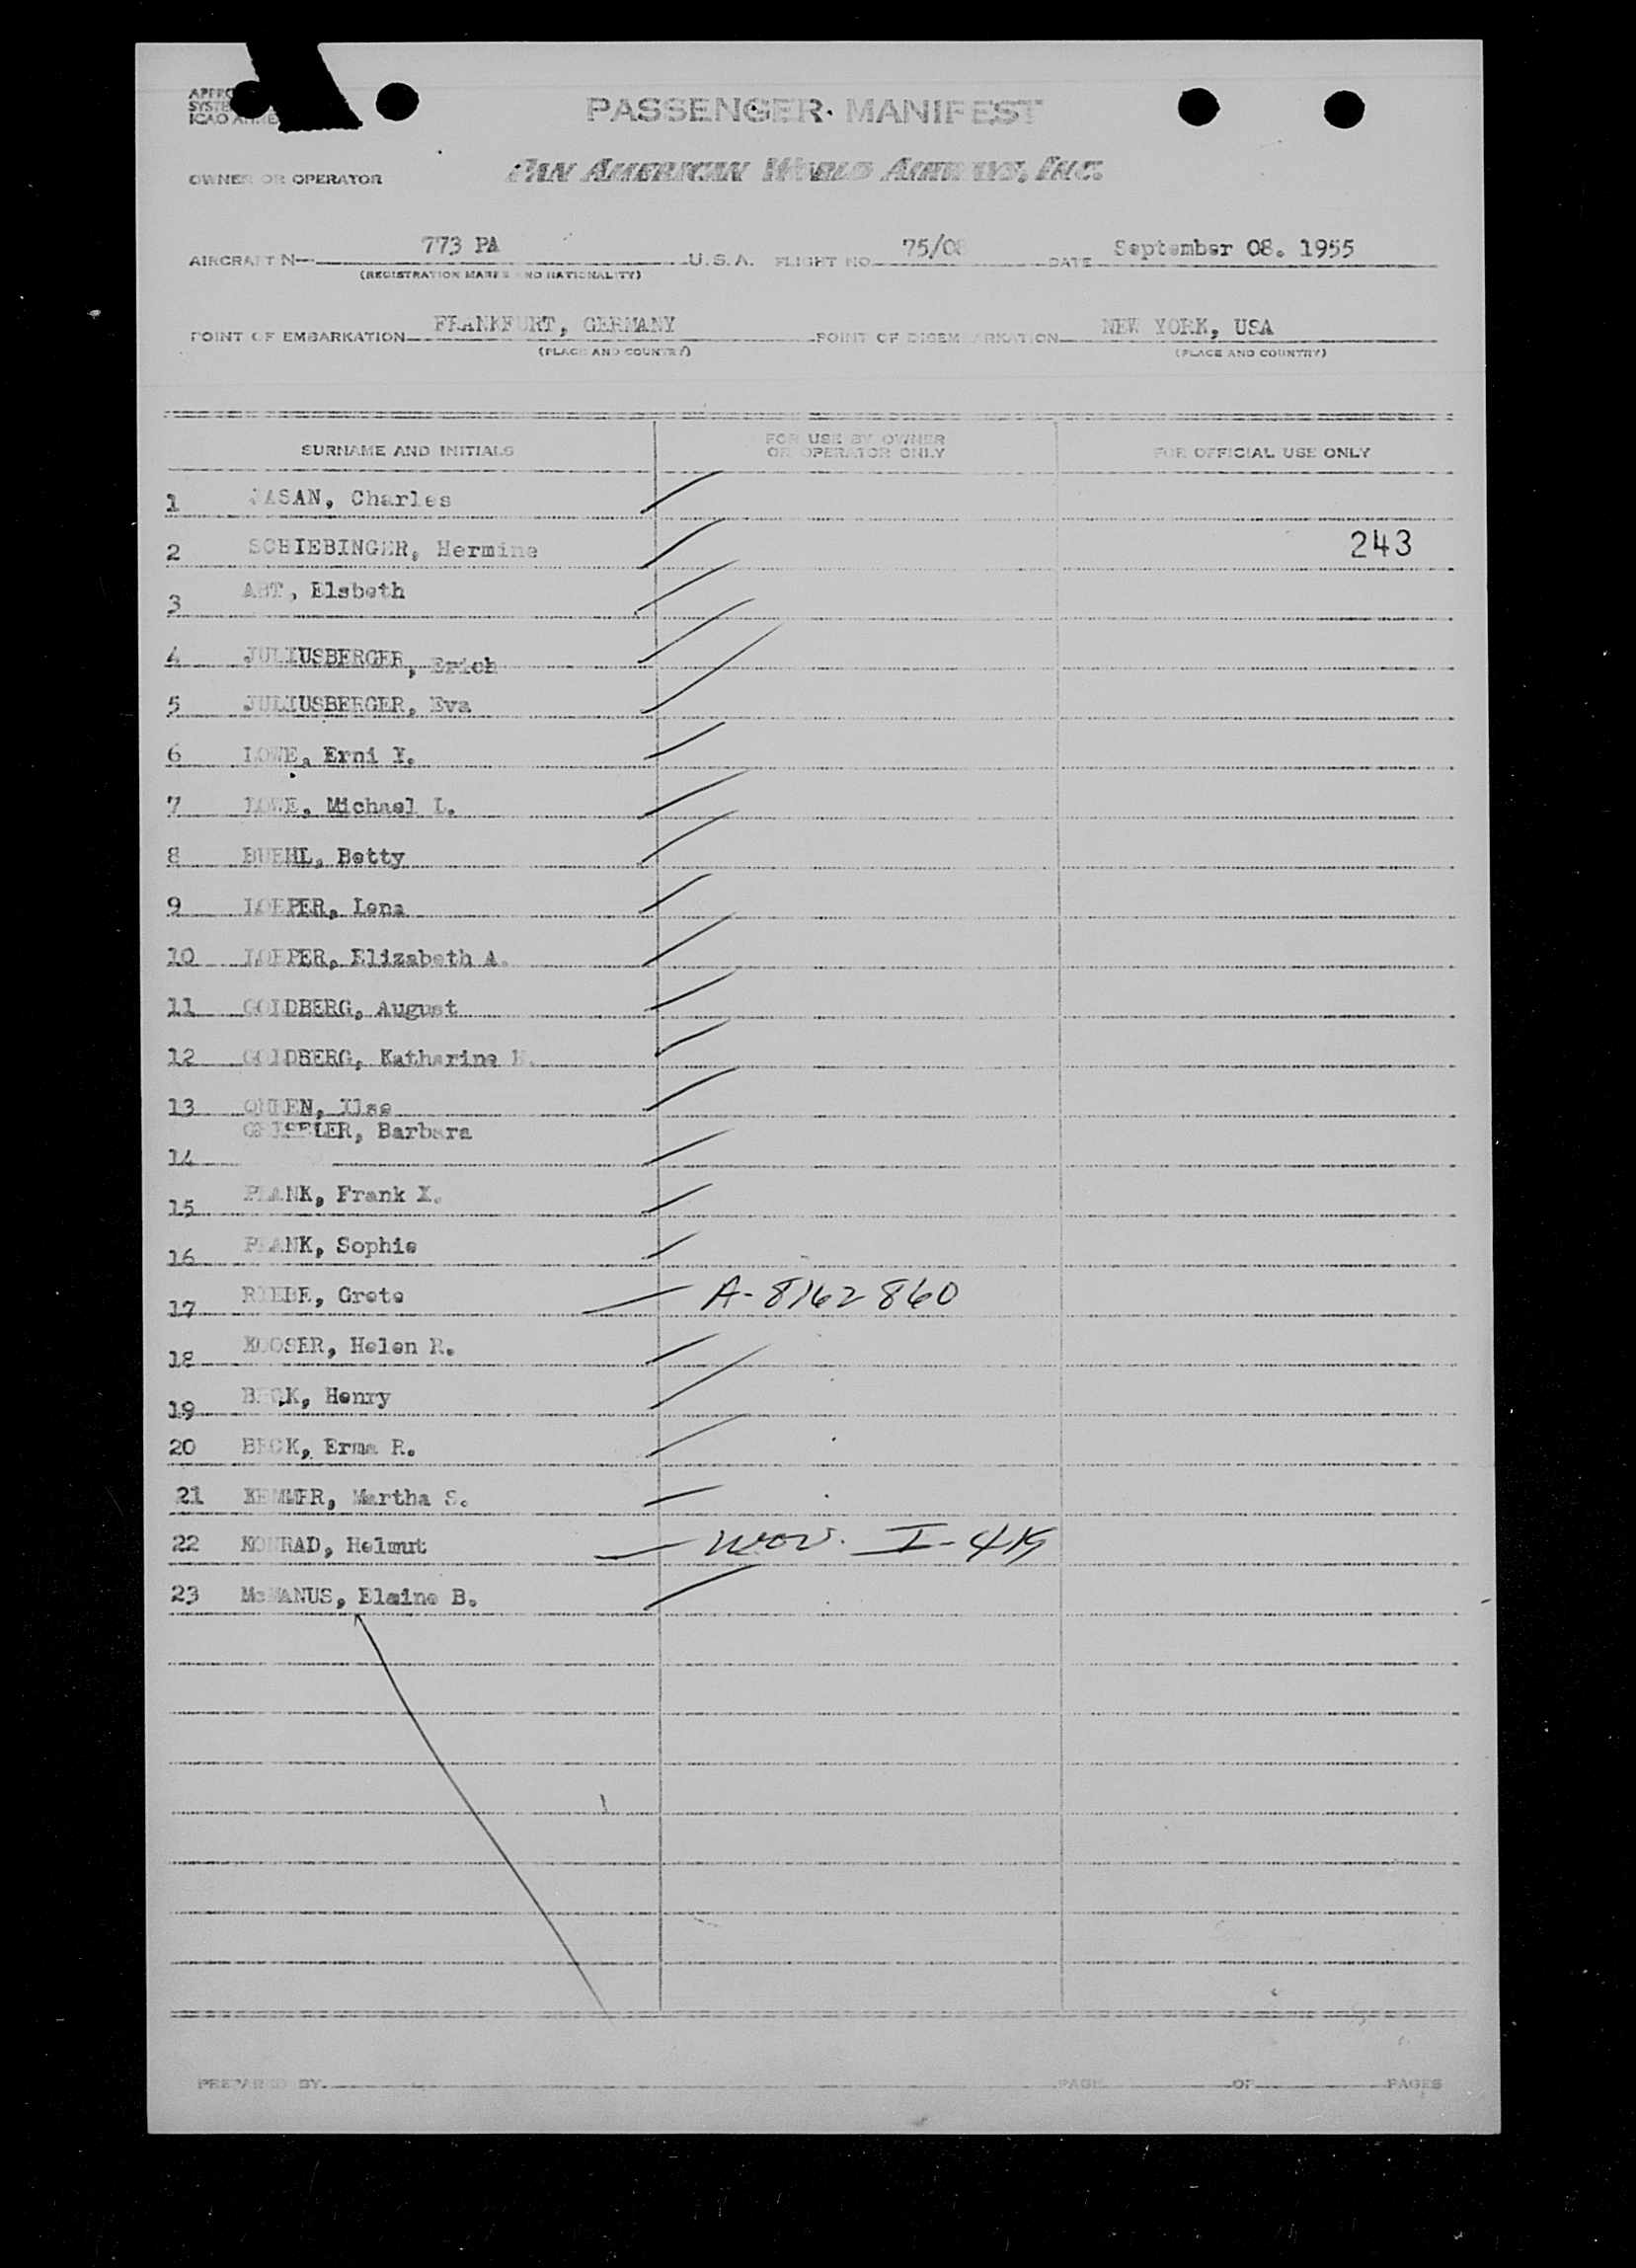 PASSENGER MANIFEST
OWNER OR OPERATOR PAN AMERICAN WORLD AIRWAYS, INC.
AIRCRAFT N— 773 PA U.S.A. FLIGHT NO. 75/08 DATE September 08. 1955
(REGISTRATION MARKS AND NATIONALITY)
POINT OF EMBARKATION FRANKFURT, GERMANY POINT OF DISEMBARKATION NEW YORK, USA
(PLACE AND COUNTRY) (PLACE AND COUNTRY)
SURNAME AND INITIALS FOR USE BY OWNER OR OPERATOR ONLY FOR OFFICIAL USE ONLY
1 JASAN, Charles
2 SCHIEBINGER, Hermine 243
3 ABT, Elsbeth
4 JULIUSBERGER, Erich
5 JULIUSBERGER, Eva
6 LOWE, Erni Y.
7 LOWE, Michael L.
8 BUEHL, Betty
9 LOEPER, Lena
10 LOEPER, Elizabeth A.
11 GOLDBERG, August
12 GOLDBERG, Katharine H.
13 Ilse
14 Barbara
15 PLANK, Frank X.
16 PLANK, Sophie
17 Grete A-8162860
18 KOOSER, Helen R.
19 BECK, Henry
20 BECK, Erma R.
21 KEMMER, Martha S.
22 KONRAD, Helmut
23 McMANUS, Elaine B.
PREPARED BY PAGE OF PAGES